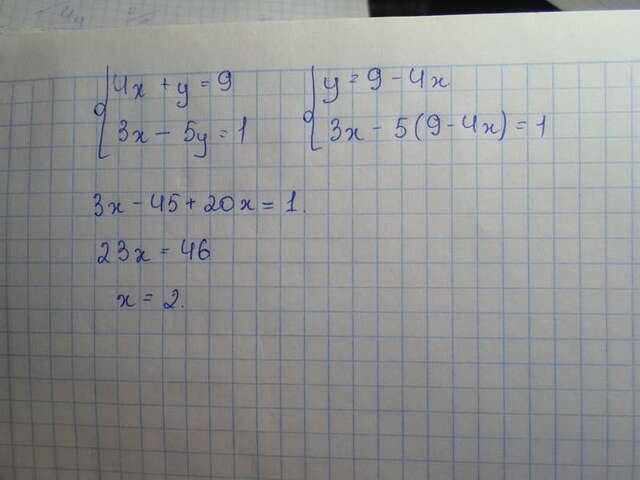 4x + y = 9
3x - 5y = 1
y = 9 - 4x
3x - 5(9 - 4x) = 1
3x - 45 + 20x = 1.
23x = 46
x = 2.